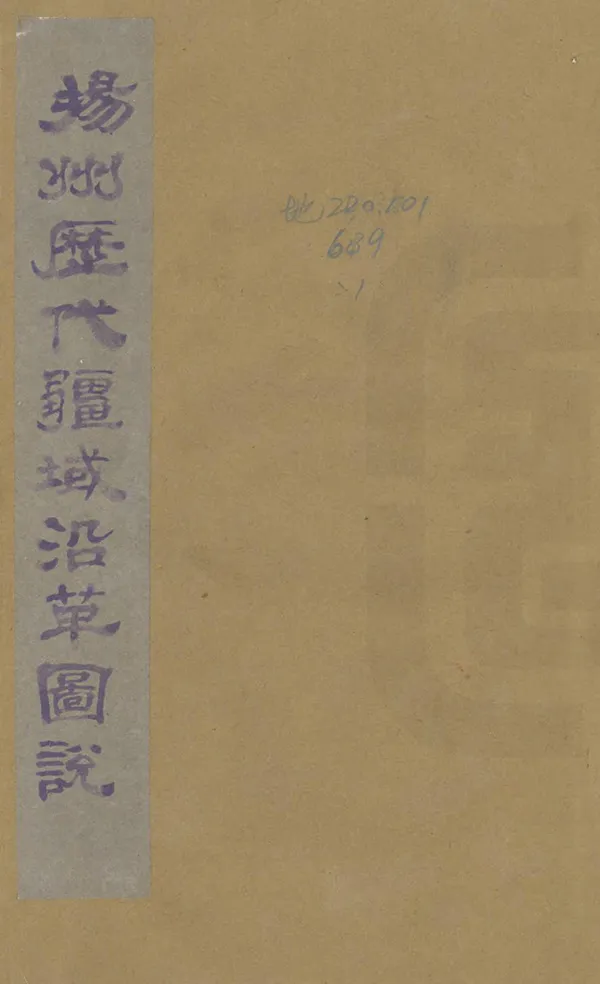 揚州歷代疆域沿革圖說
地220.801
689
:1